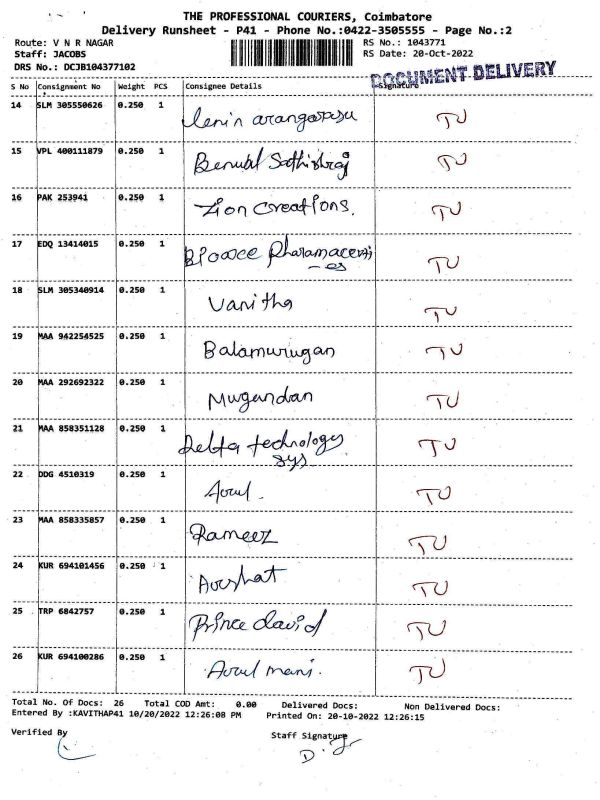 THE PROFESSIONAL COURIERS, Coimbatore
Delivery Runsheet - P41 - Phone No.:0422-3505555 - Page No.:2
Route: V N R NAGAR RS No.: 1043771
Staff: JACOBS RS Date: 20-Oct-2022
DRS No.: DCJB104377102
DOCUMENT DELIVERY
S No Consignment No Weight PCS Consignee Details Signature
14 SLM 305550626 0.250 1 lenin TU
15 VPL 400111879 0.250 1 TU
16 PAK 253941 0.250 1 Zion Creations. TU
17 EDQ 13414015 0.250 1 TU
18 SLM 305340914 0.250 1 Vanitha TU
19 MAA 942254525 0.250 1 Balamurugan TU
20 MAA 292692322 0.250 1 Mugundan TU
21 MAA 858351128 0.250 1 Delta technology TU
sys
22 DDG 4510319 0.250 1 Arul. TU
23 MAA 858335857 0.250 1 Rameez TU
24 KUR 694101456 0.250 1 Arshat TU
25 TRP 6842757 0.250 1 Prince david TU
26 KUR 694100286 0.250 1 Arul mani. TU
Total No. Of Docs: 26 Total COD Amt: 0.00 Delivered Docs: Non Delivered Docs:
Entered By :KAVITHAP41 10/20/2022 12:26:08 PM Printed On: 20-10-2022 12:26:15
Verified By Staff Signature